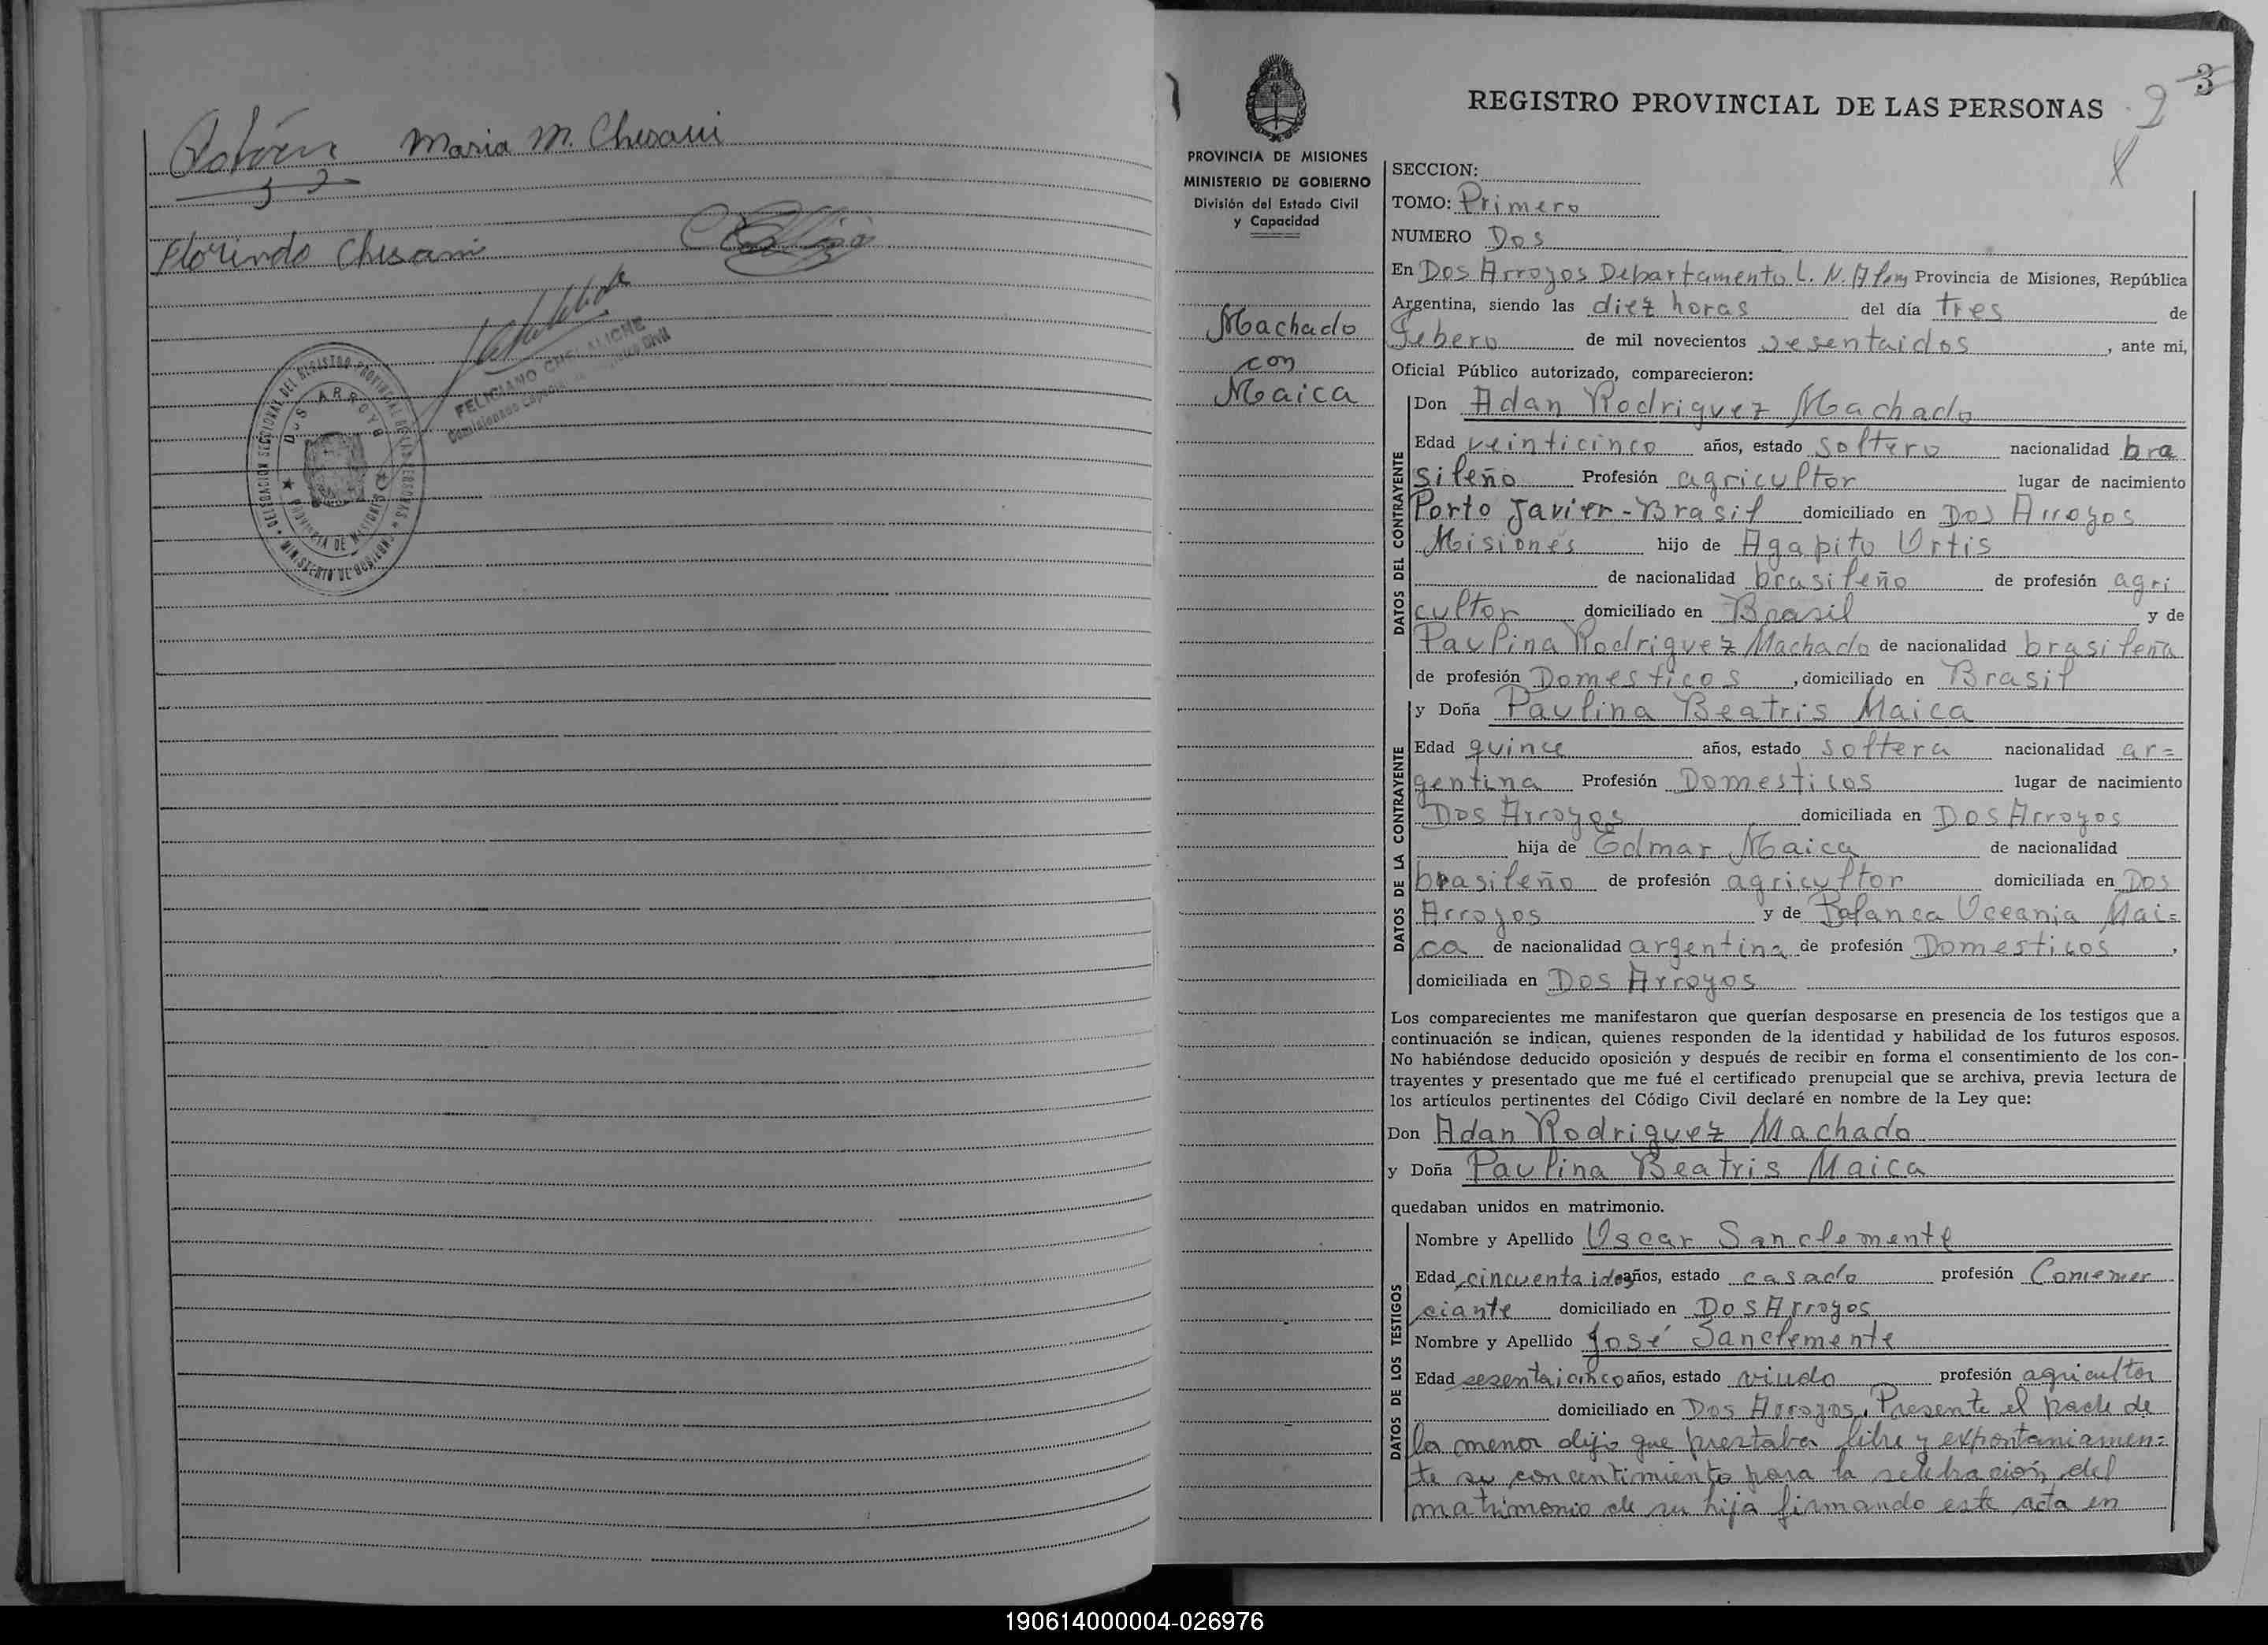 Maria M. Chesani
Florindo Chesani
FELICIANO
DELEGACION SECCIONAL DEL REGISTRO PROVINCIAL DE LAS PERSONAS
DOS ARROYOS
PROVINCIA DE MISIONES
MINISTERIO DE GOBIERNO
3
2
REGISTRO PROVINCIAL DE LAS PERSONAS
PROVINCIA DE MISIONES
MINISTERIO DE GOBIERNO
División del Estado Civil
y Capacidad
Machado
con
Maica
SECCION:
TOMO: Primero
NUMERO Dos
En Dos Arroyos Departamento L. N. Alem Provincia de Misiones, República
Argentina, siendo las diez horas del día tres de
Febero de mil novecientos sesentaidos, ante mi,
Oficial Público autorizado, comparecieron:
DATOS DEL CONTRAYENTE
Don Adan Rodriguez Machado
Edad veinticinco años, estado soltero nacionalidad bra
sileño Profesión agricultor lugar de nacimiento
Porto Javier - Brasil domiciliado en Dos Arroyos
Misiones hijo de Agapito Ortis
de nacionalidad brasileño de profesión agri
cultor domiciliado en Brasil y de
Paulina Rodriguez Machado de nacionalidad brasileña
de profesión Domesticos, domiciliado en Brasil
DATOS DE LA CONTRAYENTE
y Doña Paulina Beatris Maica
Edad quince años, estado soltera nacionalidad ar=
gentina Profesión Domesticos lugar de nacimiento
Dos Arroyos domiciliada en Dos Arroyos
hija de Edmar Maica de nacionalidad
brasileño de profesión agricultor domiciliada en Dos
Arroyos y de Balanca Oceania Mai=
ca de nacionalidad argentina de profesión Domesticos,
domiciliada en Dos Arroyos
Los comparecientes me manifestaron que querían desposarse en presencia de los testigos que a
continuación se indican, quienes responden de la identidad y habilidad de los futuros esposos.
No habiéndose deducido oposición y después de recibir en forma el consentimiento de los con-
trayentes y presentado que me fué el certificado prenupcial que se archiva, previa lectura de
los artículos pertinentes del Código Civil declaré en nombre de la Ley que:
Don Adan Rodriguez Machado
y Doña Paulina Beatris Maica
quedaban unidos en matrimonio.
DATOS DE LOS TESTIGOS
Nombre y Apellido Oscar Sanclemente
Edad cincuentaidos años, estado casado profesión Comemer
ciante domiciliado en Dos Arroyos
Nombre y Apellido José Sanclemente
Edad sesentaicinco años, estado viudo profesión agricultor
domiciliado en Dos Arroyos. Presente el padre de
la menor dijo que prestaba libre y expontaniamen=
te su concentimiento para la selebración del
matrimonio de su hija firmando este acta en
190614000004-026976